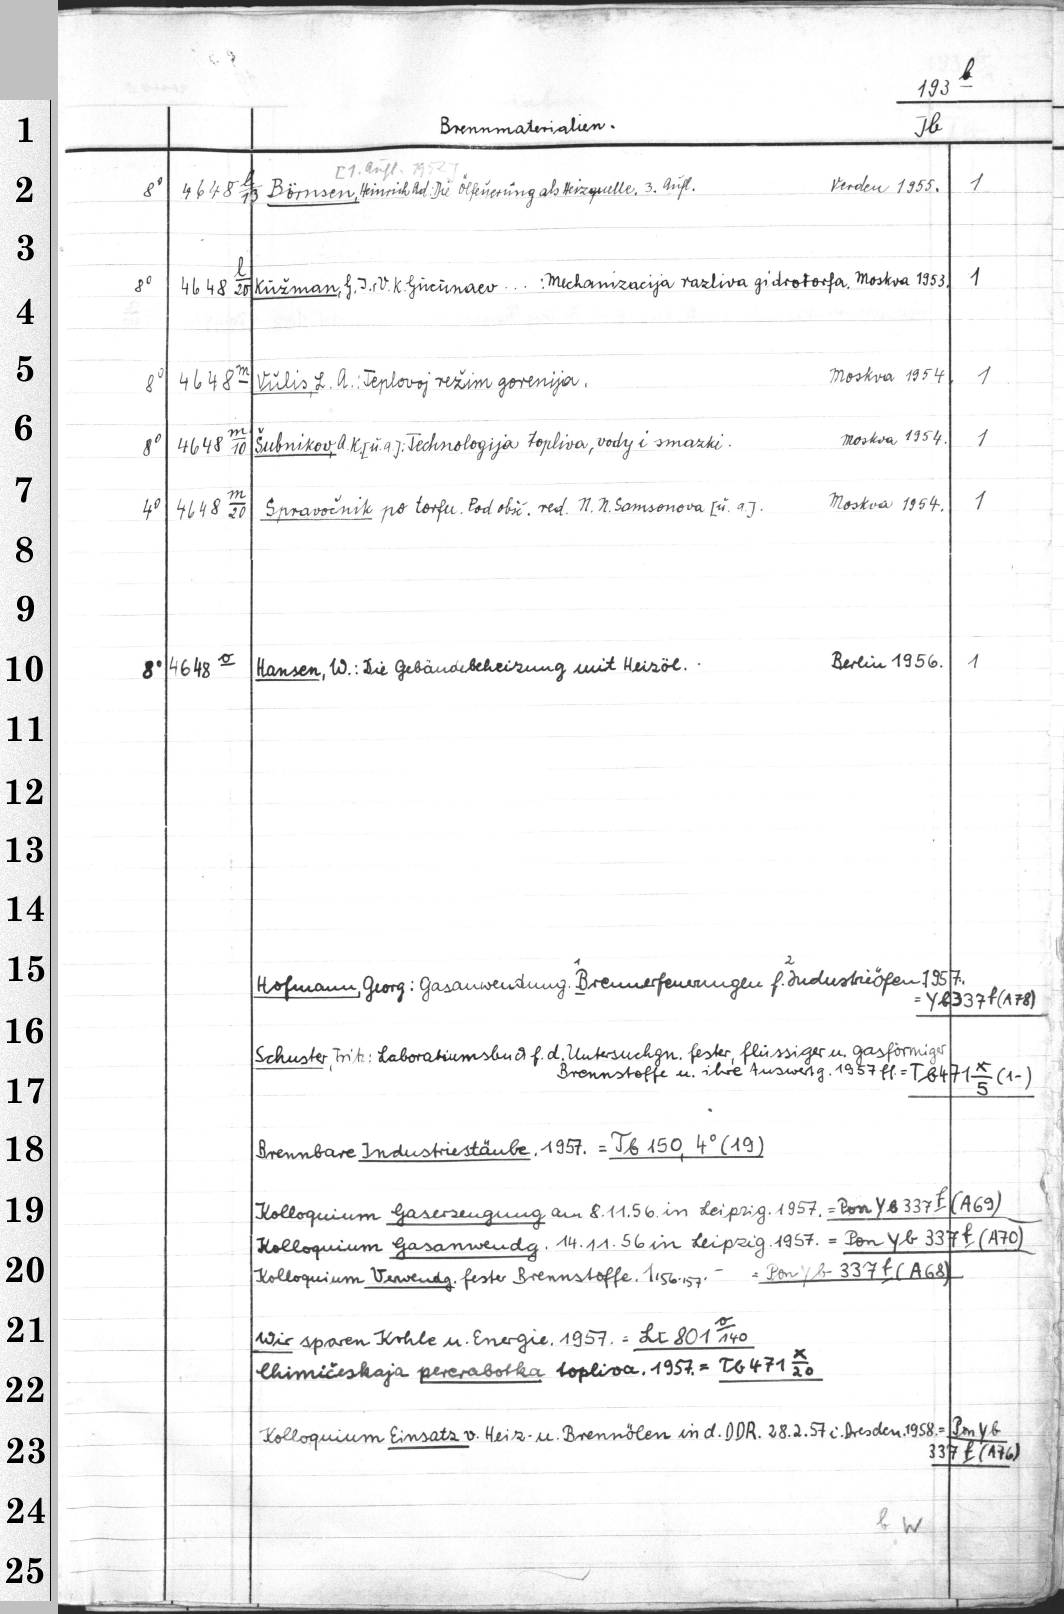 193 b
1 Brennmaterialien. Tb
[1. Aufl. 1952]
2 8° 4648 l/13 Börnsen, Heinrich Ad: Die Ölfeuerung als Heizquelle. 3. Aufl. Verden 1955. 1
3
8° 4648 l/20 Kužman, G. I. V. K. Gucunaev ... : Mechanizacija razliva gidrotorfa. Moskva 1953. 1
4
5 8° 4648 m Vulis, L. A.: Teplovoj režim gorenija. Moskva 1954. 1
6 8° 4648 m/10 Šubnikov, A. K. [u. a.]: Technologija topliva, vody i smazki. Moskva 1954. 1
7 4° 4648 m/20 Spravočnik po torfu. Pod obšč. red. N. N. Samsonova [u. a.]. Moskva 1954. 1
8
9
10 8° 4648 o Hansen, W.: Die Gebäudebeheizung mit Heizöl. Berlin 1956. 1
11
12
13
14
15 Hofmann, Georg: Gasanwendung. 1 Brennerfeuerungen f. 2 Industrieöfen. 1957.
= Yb 337 f (A78)
16
Schuster, Fritz: Laboratiumsbuch f. d. Untersuchgn. fester, flüssiger u. gasförmiger
17 Brennstoffe u. ihre Auswertg. 1957 ff. = Tb 471 x/5 (1-)
18 Brennbare Industriestäube. 1957. = Tb 150, 4° (19)
19 Kolloquium Gaserzeugung am 8.11.56 in Leipzig. 1957. = Pon Yb 337 f (A69)
Kolloquium Gasanwendg. 14.11.56 in Leipzig. 1957. = Pon Yb 337 f (A70)
20 Kolloquium Verwendg. fester Brennstoffe. 1. 56. 157. - = Pon Yb 337 f (A68)
21 Wir sparen Kohle u. Energie. 1957. = Lt 801 o/140
22 Chimičeskaja pererabotka topliva. 1957. = Tb 471 x/20
23 Kolloquium Einsatz v. Heiz- u. Brennölen in d. DDR. 28.2.57 i. Dresden. 1958. = Pon Yb
337 f (A76)
24
b W
25